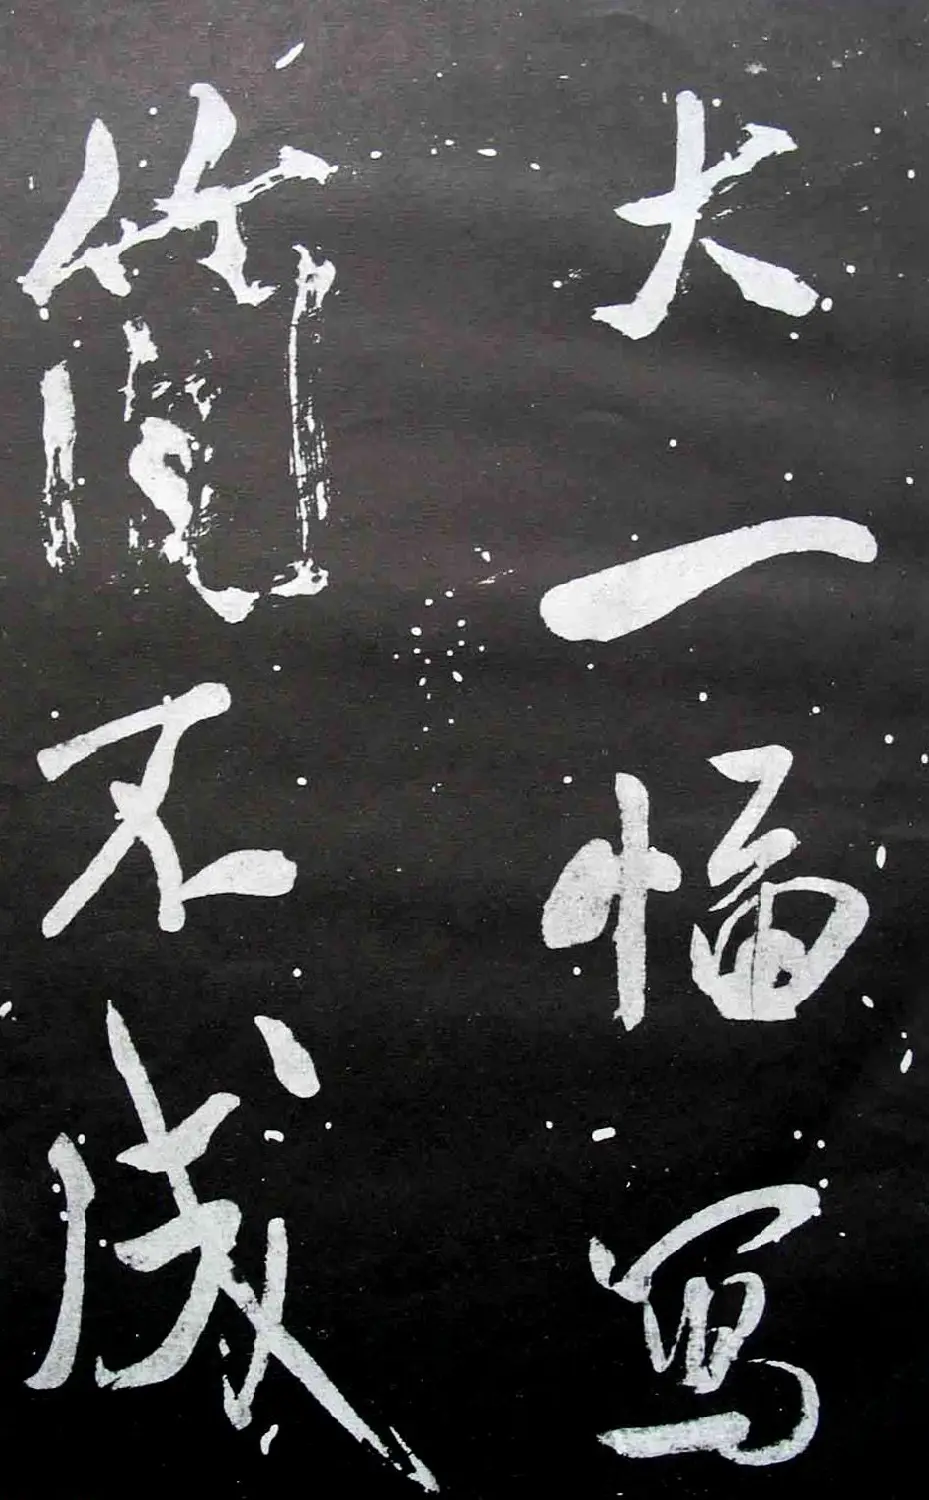 大一幅写
簡不成